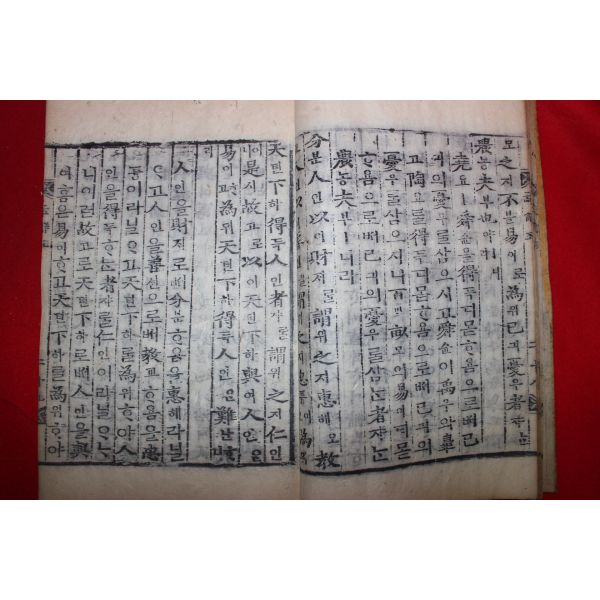 모之지不블易이로為위己긔憂우者쟈ᄂᆞᆫ
農농夫부也야ㅣ니
堯요ㅣ舜슌을得득디몯홈으로ᄡᅥ己
긔의憂우를삼으시고舜슌이禹우와皐
고陶요를得득디몯홈으로ᄡᅥ己긔의
憂우를삼으시니百ᄇᆡᆨ畝모의易이티몯
홈으로ᄡᅥ己긔의憂우를삼ᄂᆞᆫ者쟈ᄂᆞᆫ
農농夫부ㅣ니라
分분人인以이財ᄌᆡ를謂위之지惠혜오教
人인以이 謂위之지忠 為위
天텬下하得득人인者쟈를謂위之지仁인
이니是시故고로以이天텬下하與여人인은
易이코為위天텬下하得득人인은難난ᄒᆞ
니라
人인을財ᄌᆡ로ᄡᅥ分분홈을惠혜라닐
ᄋᆞ고人인을善션으로ᄡᅥ教교홈을忠
튱이라닐ᄋᆞ고天텬下하를為위ᄒᆞ야人
인을得득ᄒᆞᄂᆞᆫ者쟈를仁인이라닐ᄋᆞᄂᆞ
니이런故고로天텬下하로ᄡᅥ人인을與
여홈은易이ᄒᆞ고天텬下하를為위ᄒᆞ야